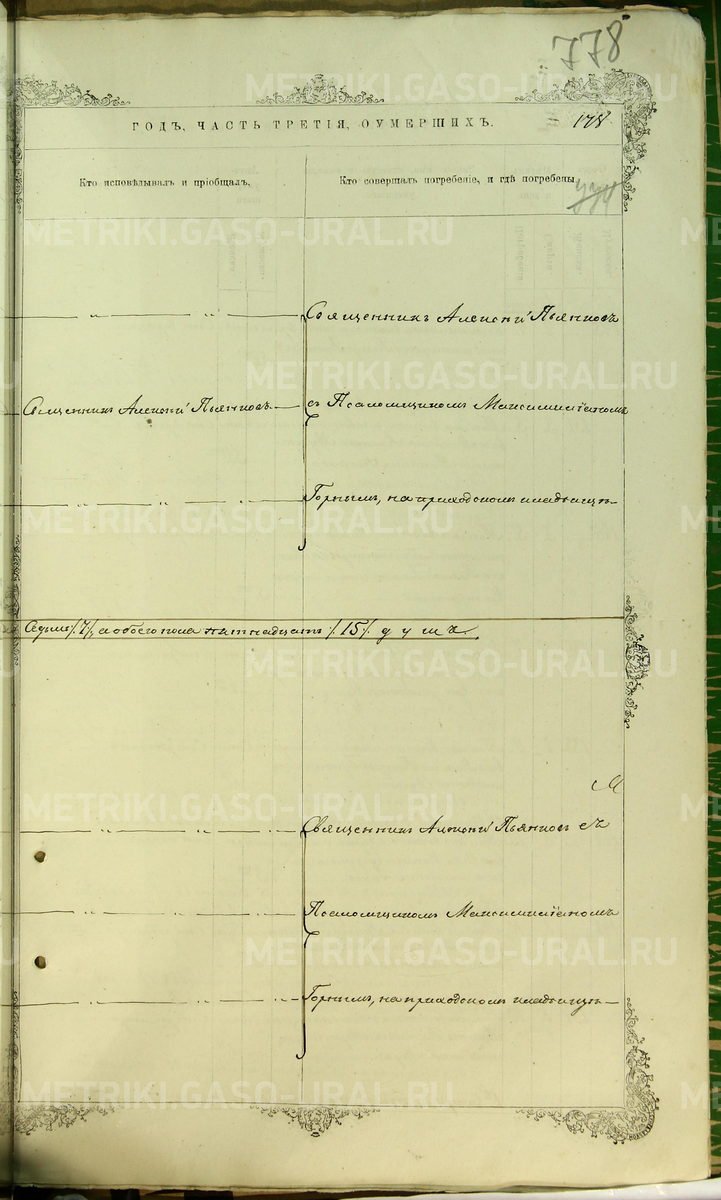 778
ГОДЪ, ЧАСТЬ ТРЕТІЯ, О УМЕРШИХЪ.
178
Кто исповѣдывал и пріобщал,
Кто совершалъ погребеніе, и гдѣ погребены
774
Священникъ Алексѣй Пьянковъ
Священникъ Алексѣй Пьянковъ
съ Псаломщикомъ Максимиліаномъ
Горнымъ, на приходскомъ кладбищѣ
Седмь /7/, а обоего пола пятнадцать /15/ душъ.
Священникъ Алексѣй Пьянковъ съ
Псаломщикомъ Максимиліаномъ
Горнымъ, на приходскомъ кладбищѣ
METRIKI.GASO-URAL.RU